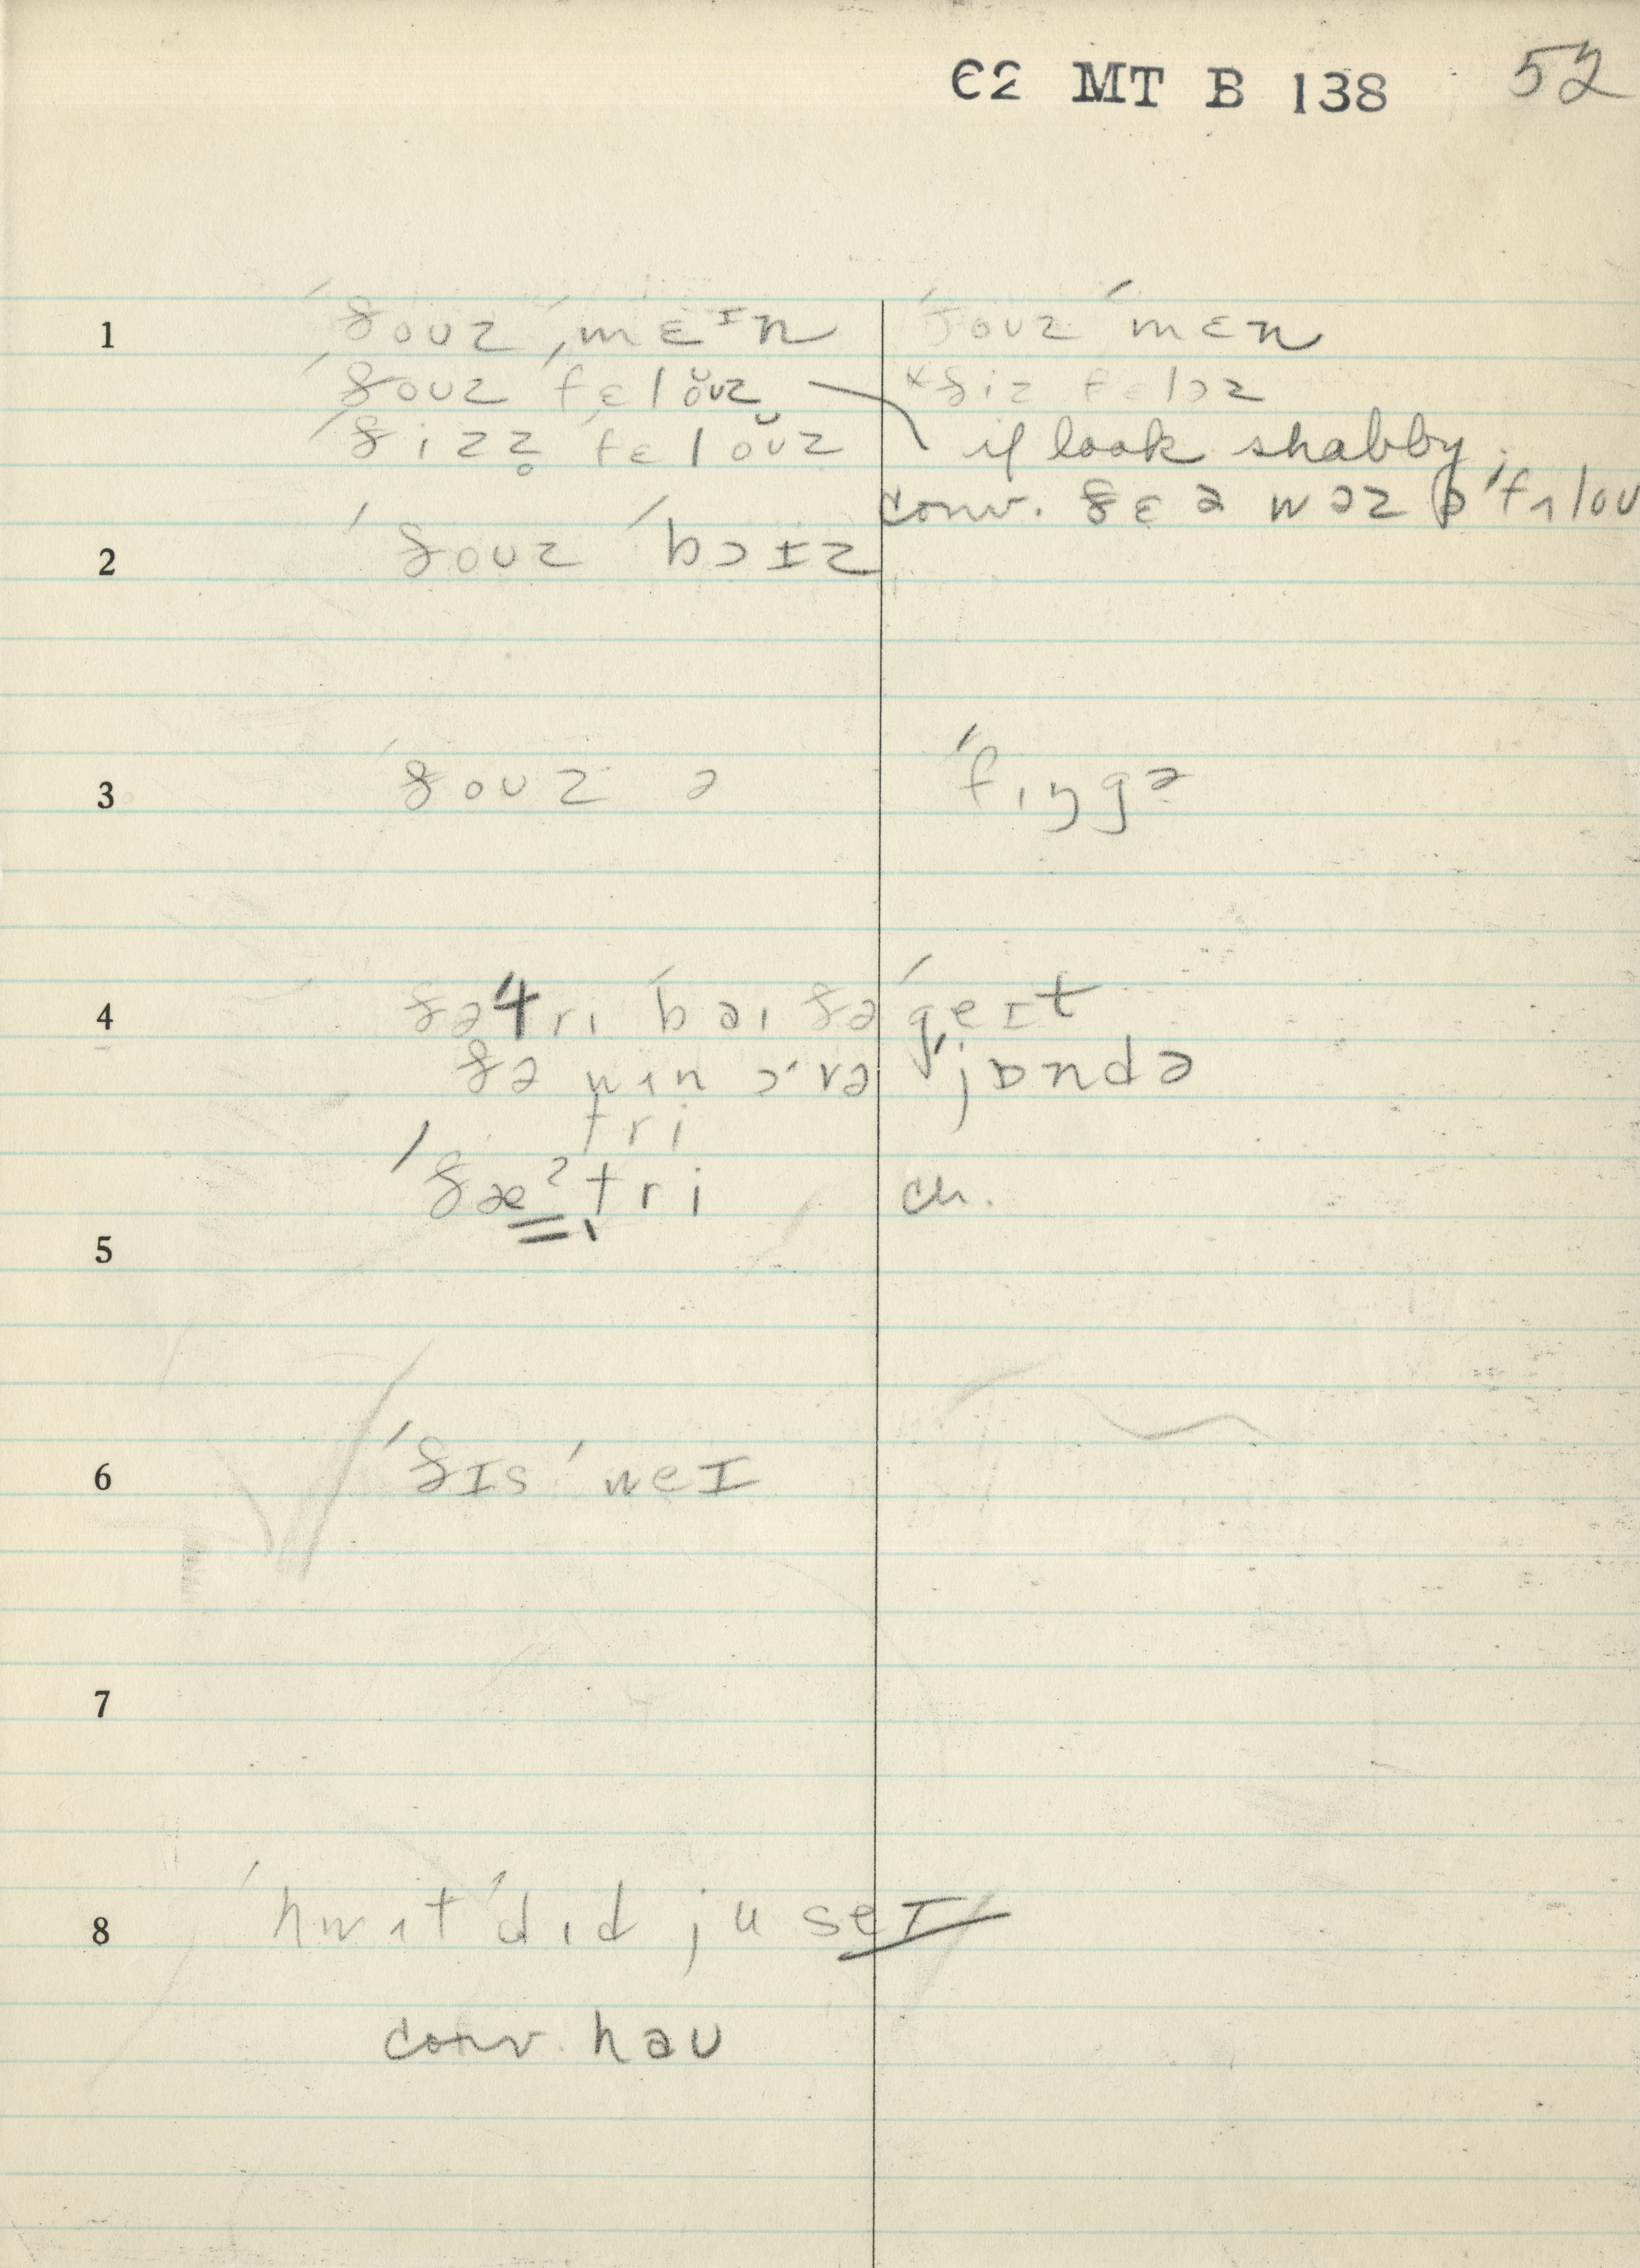 C2 MT B 138 52
1 ˈðoʊz ˈmɛᴵn ˈðoʊz ˈmɛn
ˈðoʊz ˈfɛlŏʊz ˣðiz fɛləz
ˈðizz̥ ˈfɛlŏʊz if look shabby
conv. ðɛə wəz
2 ˈðoʊz ˈbɔɪz
3 ˈðoʊz ə ˈfɪŋgə
4 ðəˈtri ˈbaɪ ðə ˈgeɪt
ðə wʌn ɔˈvə ˈjɒndə
tri
ˈðæˀˌtri ch.
5
6 ˈðɪs ˈweɪ
7
8 ˈhwʌt ˈdɪd ju seɪ
conv. haʊ